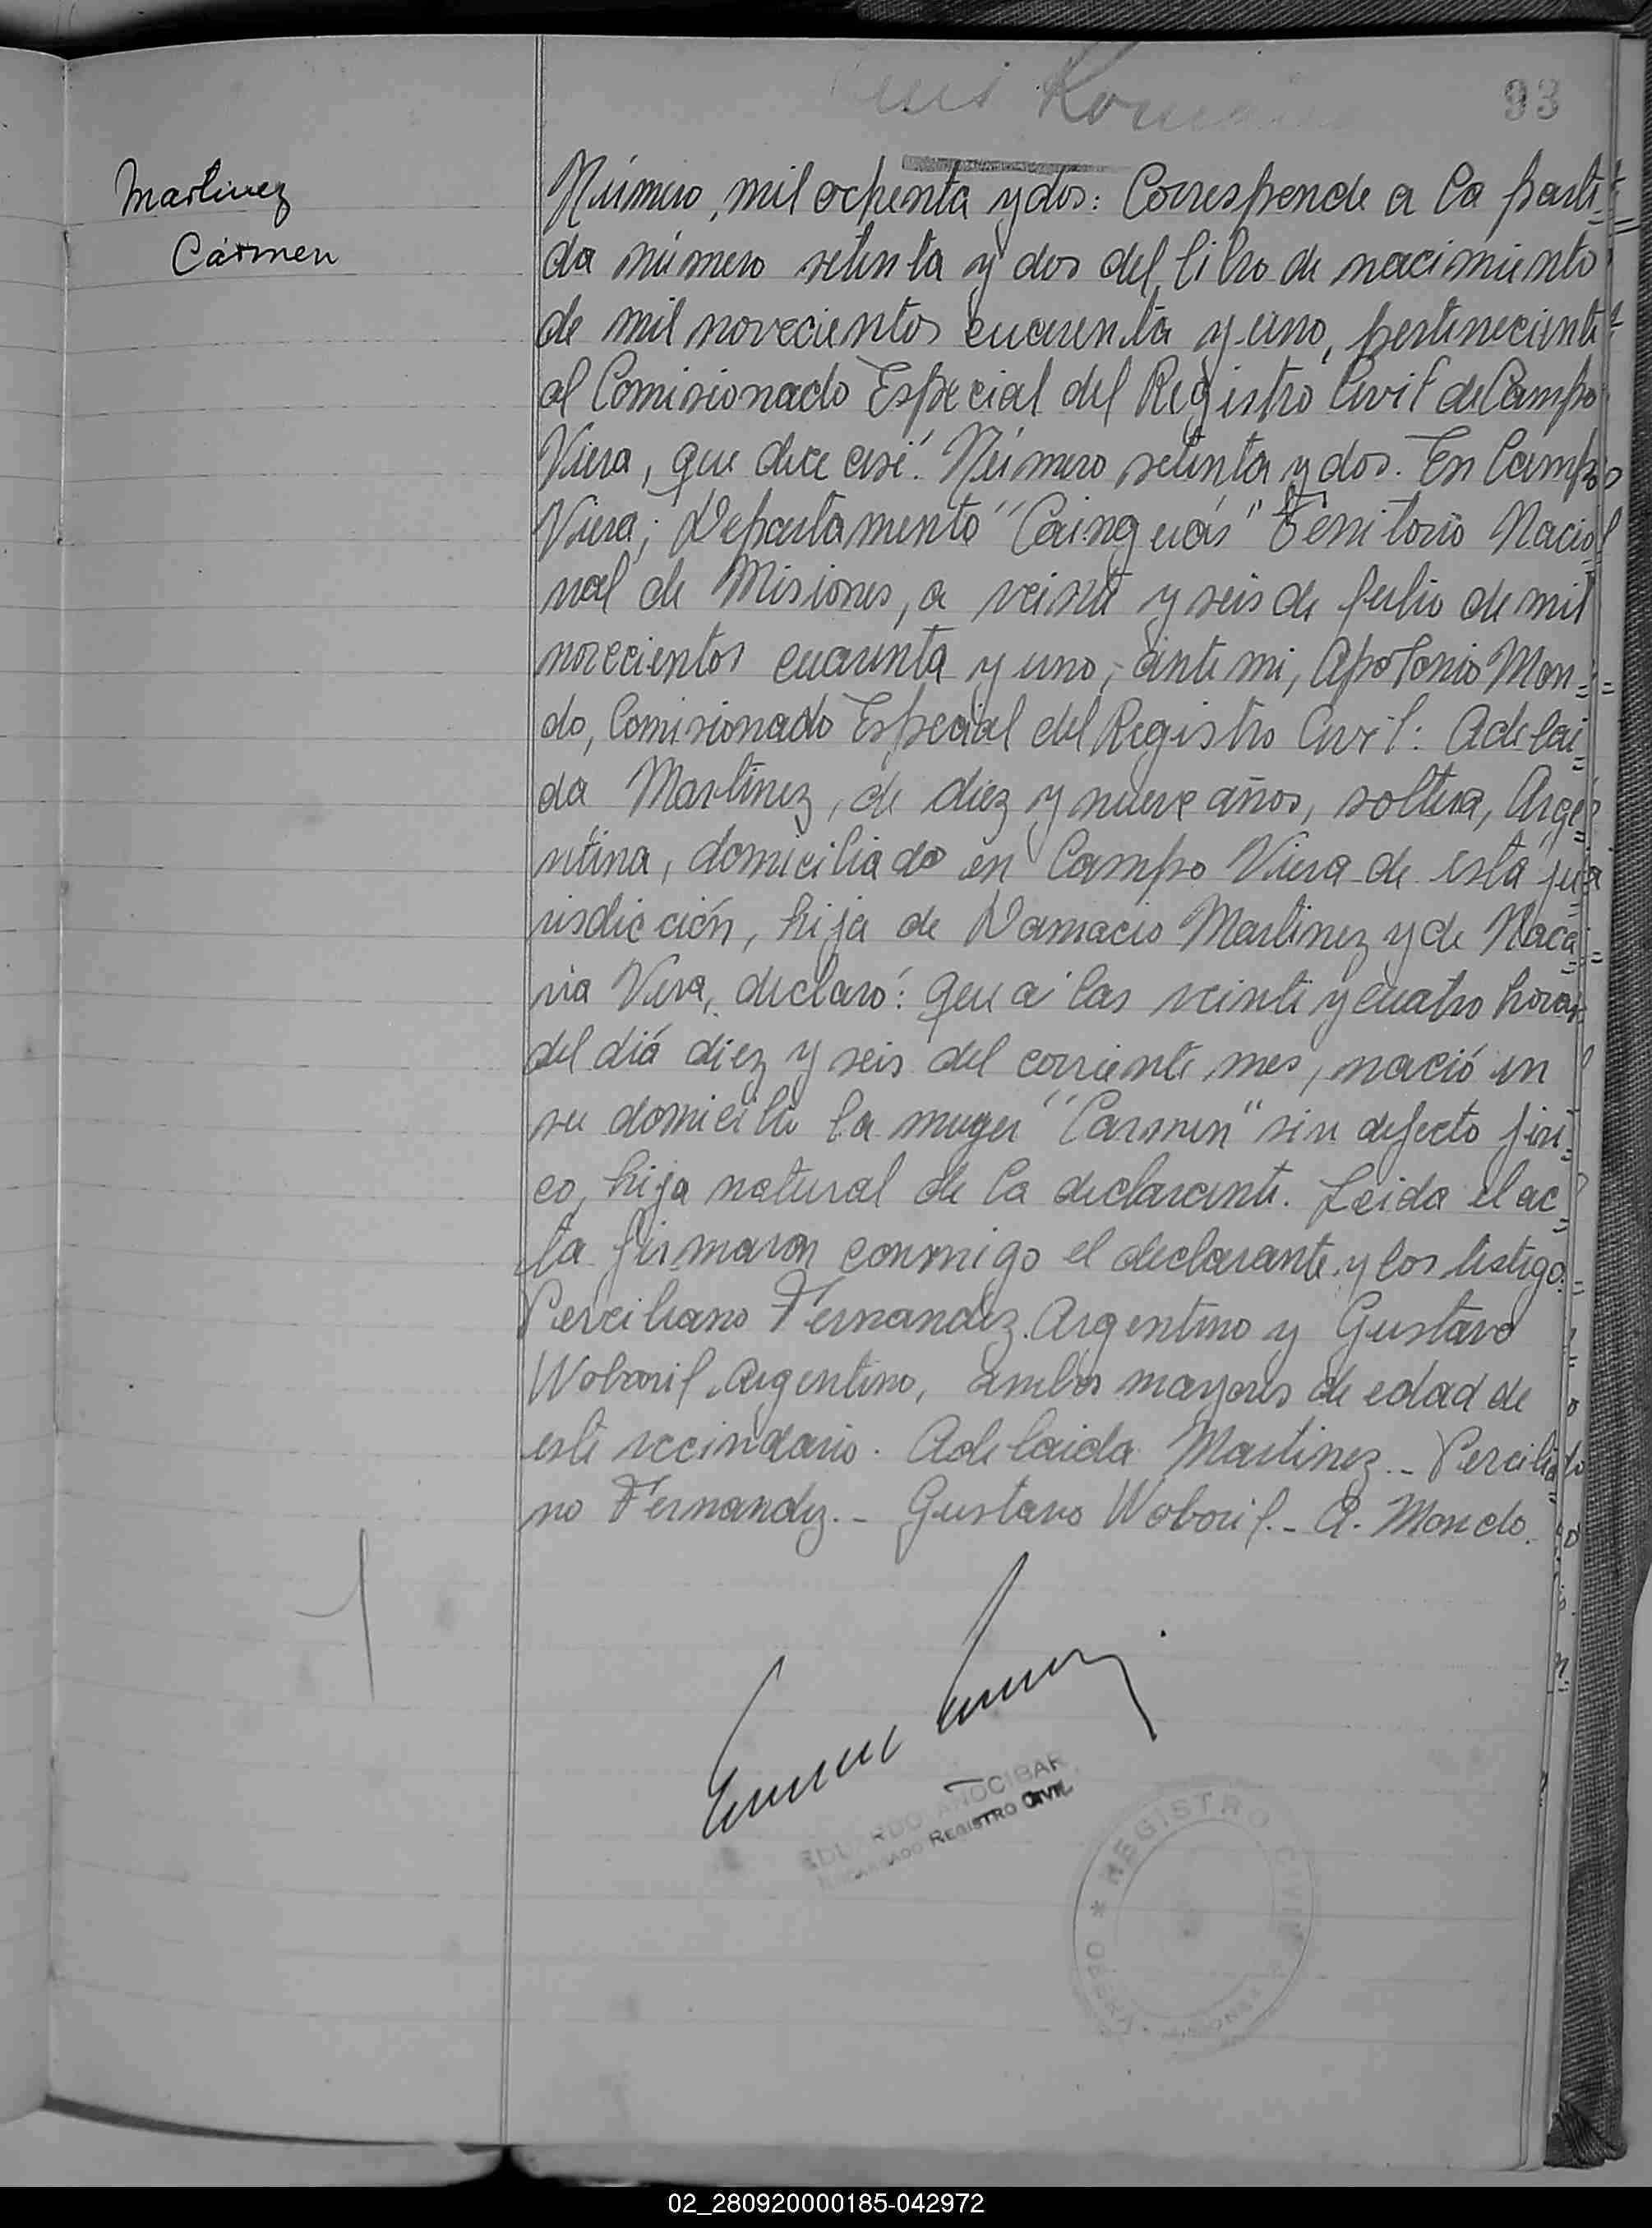 93
Martinez
Cármen
Número, mil ochenta y dos: Corresponde a la parti=
da número setenta y dos del libro de nacimiento
de mil novecientos cuarenta y uno, perteneciente
al Comisionado Especial del Registro Civil de Campo
Viera, que dice asi: Número setenta y dos. En Campo
Viera; Departamento "Cainguás" Territorio Nacio
nal de Misiones, a veinte y seis de julio de mil
novecientos cuarenta y uno, ante mi, Apolonio Mon=
do, Comisionado Especial del Registro Civil: Adelai=
da Martinez, de diez y nueve años, soltera, Arge=
ntina, domiciliado en Campo Viera de esta ju=
risdicción, hija de Damacio Martinez y de Maca=
ria Vera, declaró: que a las veinte y cuatro horas
del diá diez y seis del corriente mes, nació en
su domicilio la muger "Carmen" sin defecto fisi=
co, hija natural de la declarante. Leida el ac=
ta firmaron conmigo el declarante y los testigo=
Perciliano Fernandez Argentino y Gustavo
Woboril Argentino, ambos mayores de edad de
este vecindario. Adelaida Martinez.- Percilia=
no Fernandez.- Gustavo Woboril.- A. Mondo.
EDUARDO AÑOCIBAR
ENCARGADO REGISTRO CIVIL
* REGISTRO CIVIL
OBERA - MISIONES
02_280920000185-042972